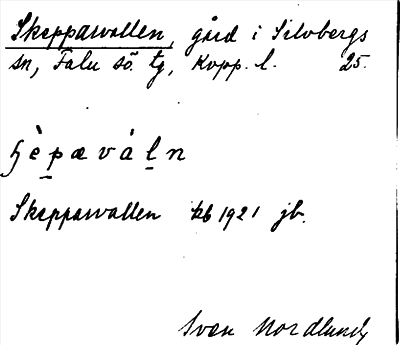 Skepparvallen, gård i Silvbergs
sn, Falu sö. tg, Kopp. l. 25.
ɧèpævàln
Skepparvallen kb 1921 jb.
Sven Nordlund